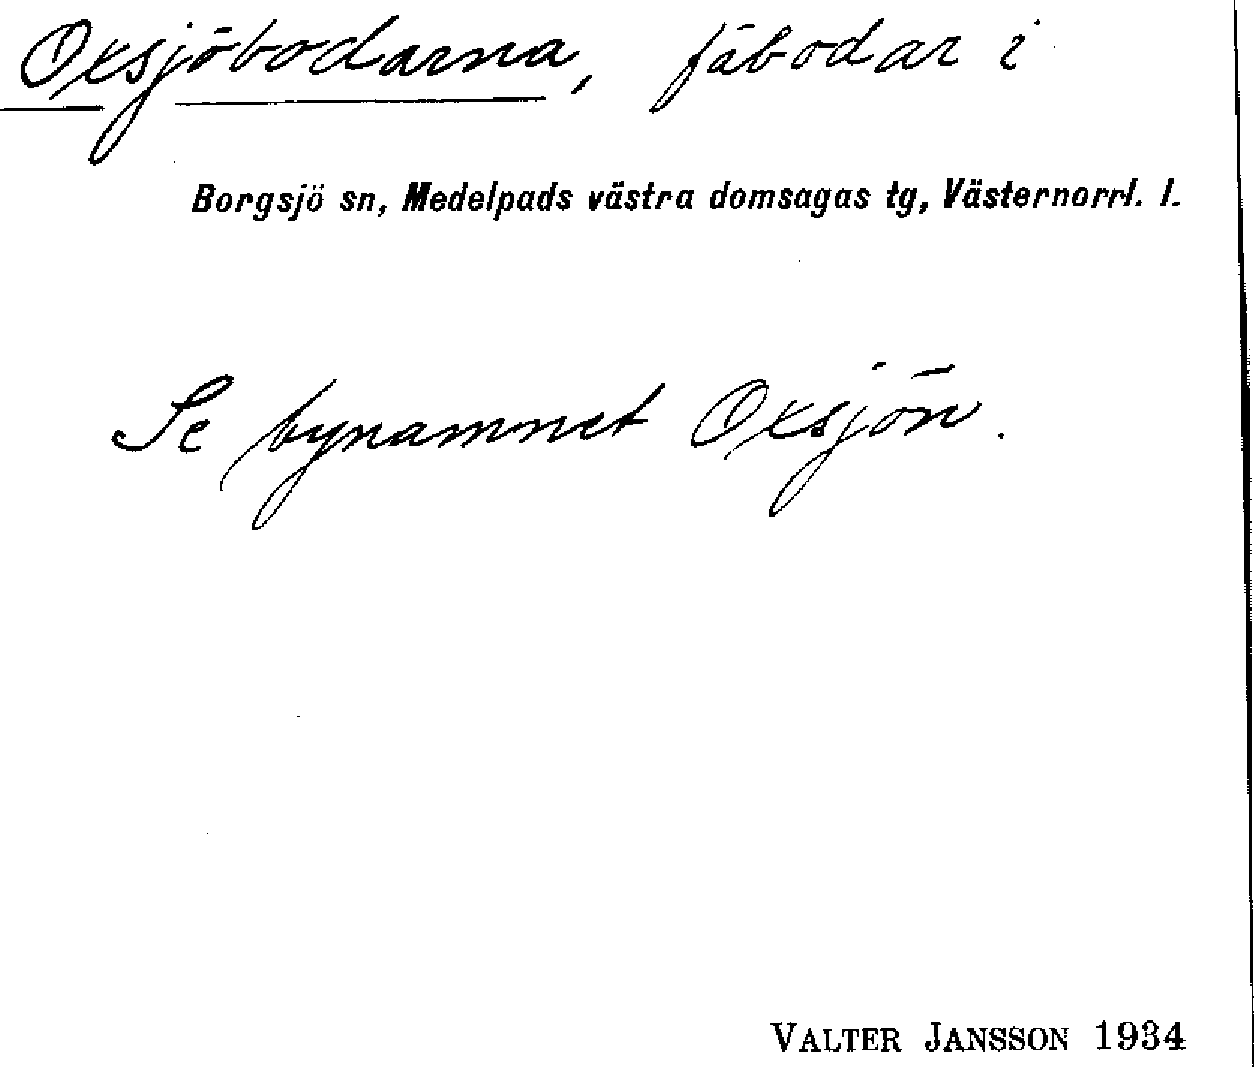 Oxsjöbodarna, fäbodar i
Borgsjö sn, Medelpads västra domsagas tg, Västernorrl. l.
Se bynamnet Oxsjön.
VALTER JANSSON 1934